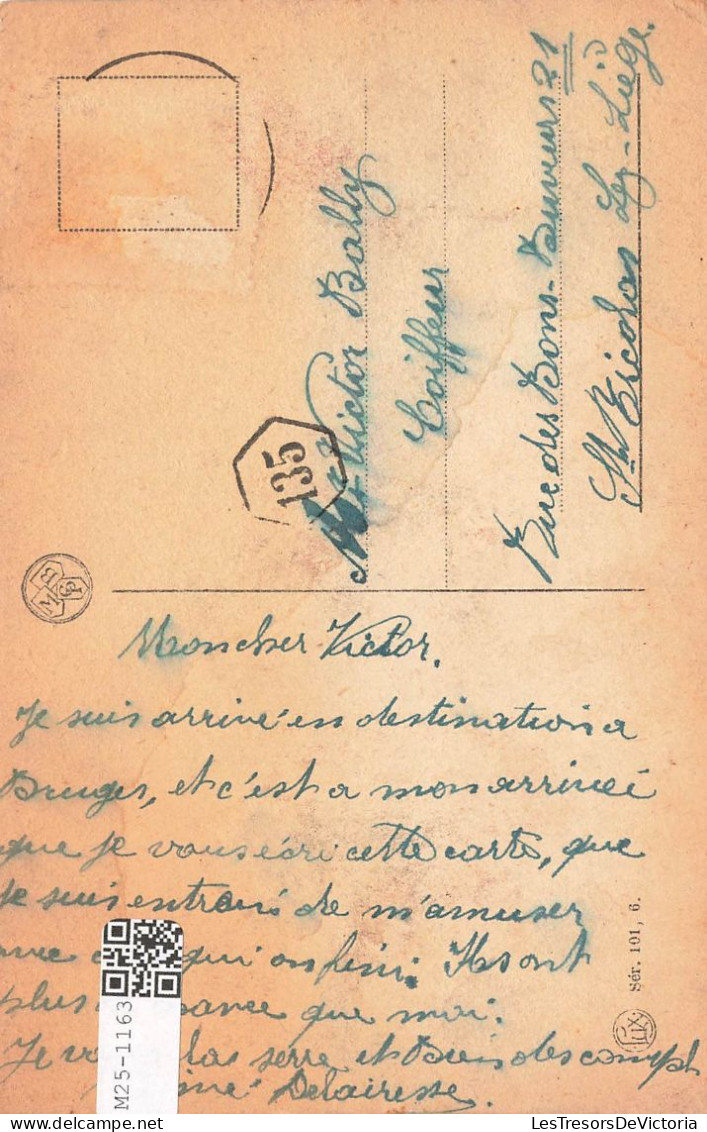 Mr Victor Bally
Coiffeur
Rue des Bons-Buveurs 21
St Nicolas Lez-Liège.
135
MGPB
Mon cher Victor.
Je suis arrivé en destination a
Bruges, et c'est a mon arriveé
que je vous écri cette carte, que
je suis entrain de m'amuser
qui on fini. Ils ont
plus que moi.
Je la serre et Puis des compl
Delairesse.
Sér. 101, 6.
Lux
M25-1163
LesTresorsDeVictoria
www.delcampe.net